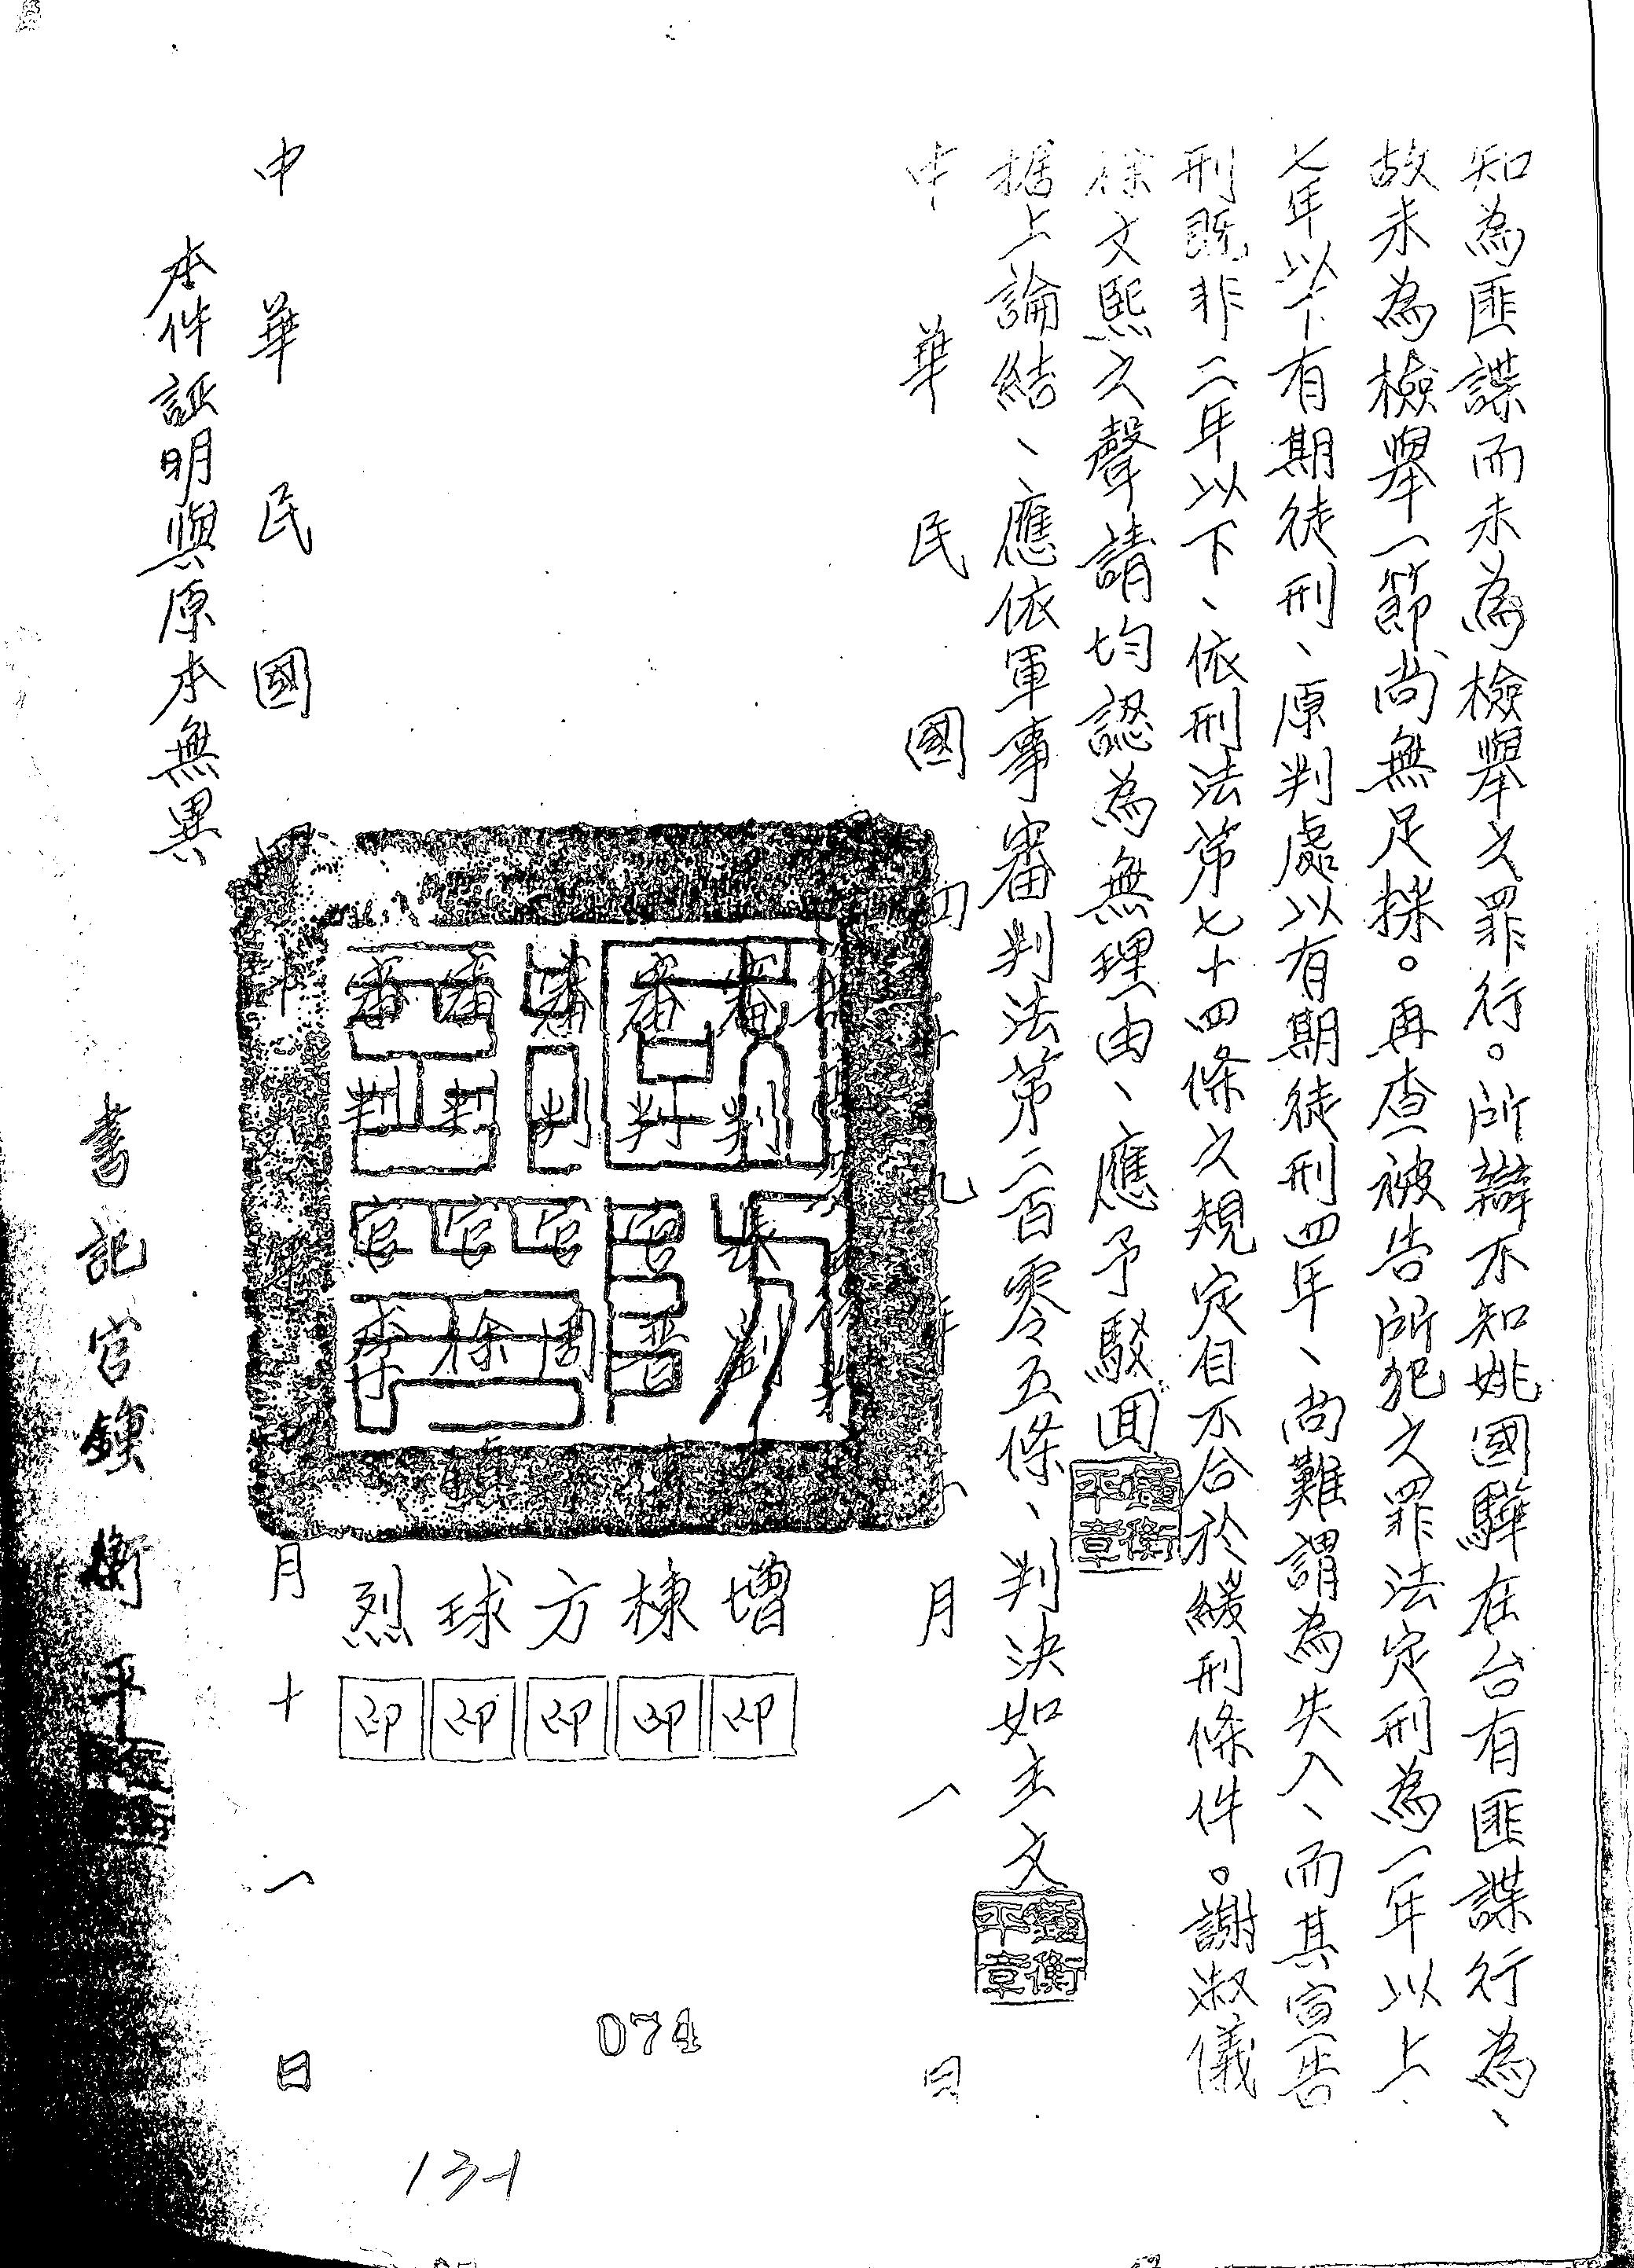 知為匪諜而未為檢舉之罪行。所辯不知姚國驊在台有匪諜行為、
故未為檢舉一節尚無足採。再查被告所犯之罪法定刑為一年以上
七年以下有期徒刑、原判處以有期徒刑四年、尚難謂為失入、而其宣告
刑既非二年以下、依刑法第七十四條之規定自不合於緩刑條件。謝淑儀
徐文熙之聲請均認為無理由、應予駁回
據上論結、應依軍事審判法第二百零五條、判決如主文
中華民國四十九年 月一日
審判 劉 增 印
審判官 晋 棟 印
審判官 周 方 印
審判官 徐 球 印
審判官 李 烈 印
中華民國四十 年 月十一日
本件証明與原本無異
書記官鍾衡平
鍾衡平章
鍾衡平章
074
131